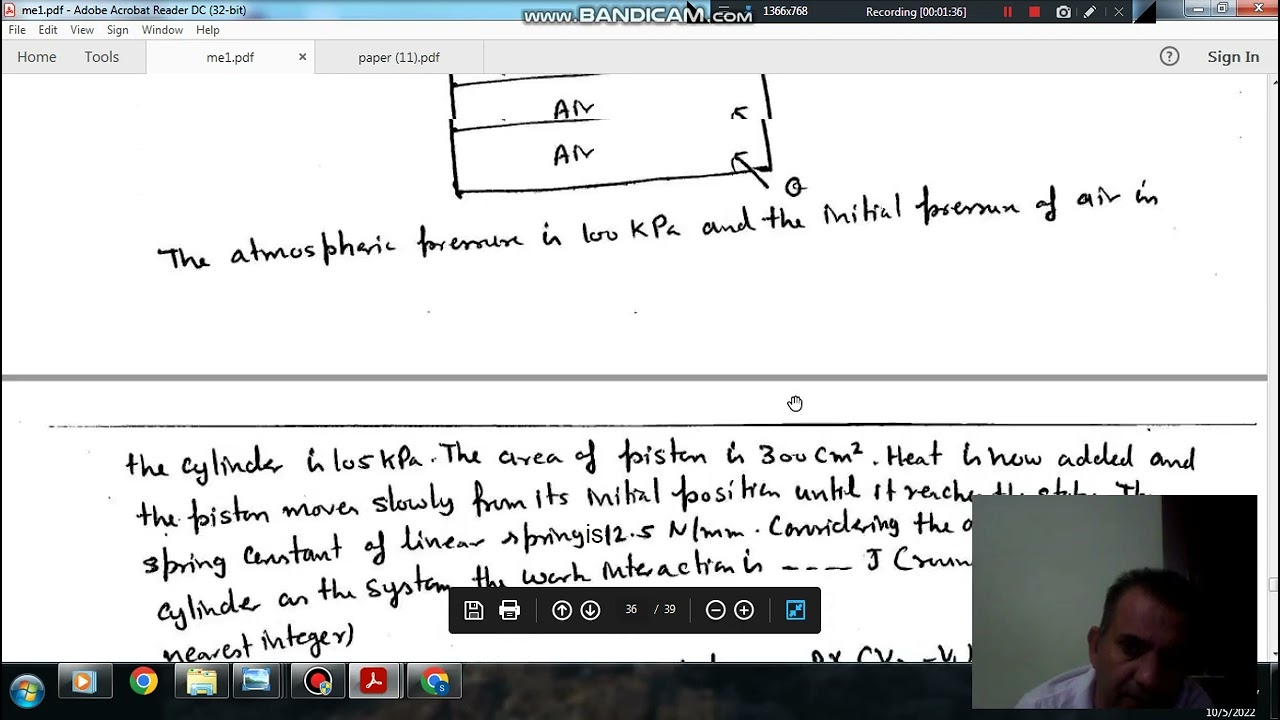 me1.pdf - Adobe Acrobat Reader DC (32-bit)
www.BANDICAM.com
1366x768
Recording [00:01:36]
File Edit View Sign Window Help
Home Tools me1.pdf × paper (11).pdf
Sign In
Air
Air
Q
The atmospharic pressure is 100 kPa and the initial pressure of air in
the cylinder is 105 kPa. The area of piston is 300 cm². Heat is now added and
the piston moves slowly from its initial position until it reaches the
spring constant of linear spring is 12.5 N/mm. Considering the
cylinder as the system the work interaction is ---- J (roun
nearest integer)
36 / 39
10/5/2022